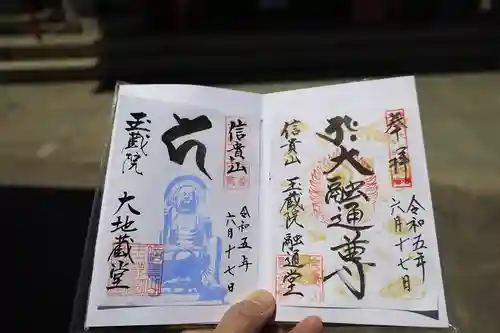 奉拝
令和五年
六月十七日
大融通尊
信貴山
玉蔵院 融通堂
信貴山
令和五年
六月十七日
玉蔵院
大地蔵堂